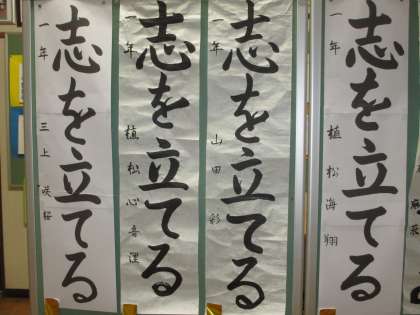 志を立てる
一年 植松海翔
志を立てる
一年 山田彩
志を立てる
一年 植松心音
志を立てる
一年 三上咲桜